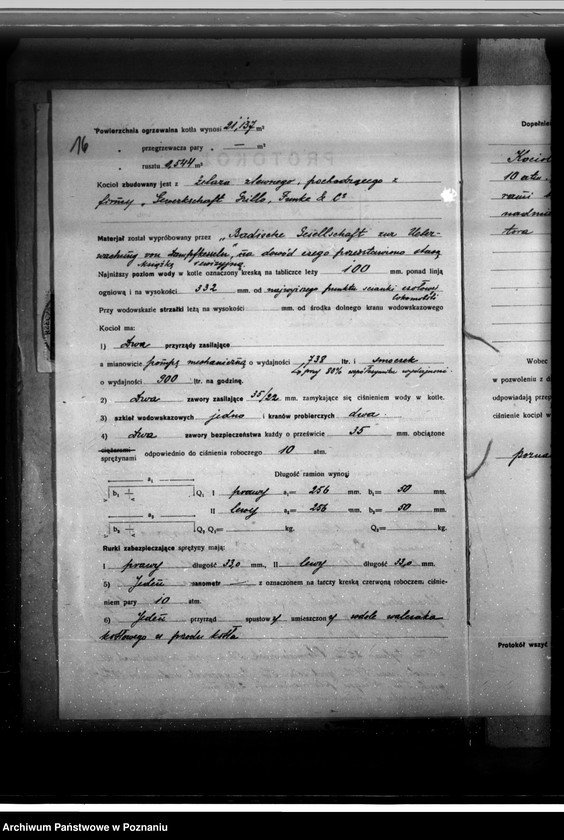 16
Powierzchnia ogrzewalna kotła wynosi 21,137 m²
„ przegrzewacza pary „ — m²
„ rusztu 0,544 m²
Kocioł zbudowany jest z żelaza zlewnego, pochodzącego z
firmy „Gewerkschaft Grillo, Funke & Co
Materjał został wypróbowany przez „Badische Gesellschaft zur Ueber-
wachung von Dampfkesseln", na dowód czego przedstawiono starą
książkę rewizyjną.
Najniższy poziom wody w kotle oznaczony kreską na tabliczce leży 100 mm. ponad linją
ogniową i na wysokości 332 mm. od najwyższego punktu ścianki czołowej
lokomobili
Przy wodowskazie strzałki leżą na wysokości mm. od środka dolnego kranu wodowskazowego
Kocioł ma:
1) Dwa przyrządy zasilające
a mianowicie pompę mechaniczną o wydajności 738 ltr. i smoczek
przy 80% współczynniku wydajności.
o wydajności 900 ltr. na godzinę.
2) Dwa zawory zasilające 35/22 mm. zamykające się ciśnieniem wody w kotle.
3) szkieł wodowskazowych jedno i kranów probierczych dwa
4) Dwa zawory bezpieczeństwa każdy o prześwicie 35 mm. obciążone
ciężarami
sprężynami odpowiednio do ciśnienia roboczego 10 atm.
Długość ramion wynosi
a₁
b₁ Q₁ I prawy a₁= 256 mm. b₁= 50 mm.
II lewy a₂= 256 mm. b₂= 50 mm.
a₂
b₂ Q₂ Q₁= kg. Q₂= kg.
Rurki zabezpieczające sprężyny mają:
I prawy długość 33,0 mm., II lewy długość 33,0 mm.
5) Jeden manometr — z oznaczonem na tarczy kreską czerwoną roboczem, ciśnie-
niem pary 10 atm.
6) Jeden przyrząd spustowy umieszczony w dole walczaka
kotłowego w przodzie kotła
Dopełnie
Kocioł
10 atm.
rami
nadmie
tora
Wobec
w pozwoleniu z d
odpowiadają przep
ciśnienie kocioł w
pozna
Protokół wszyć
Archiwum Państwowe w Poznaniu